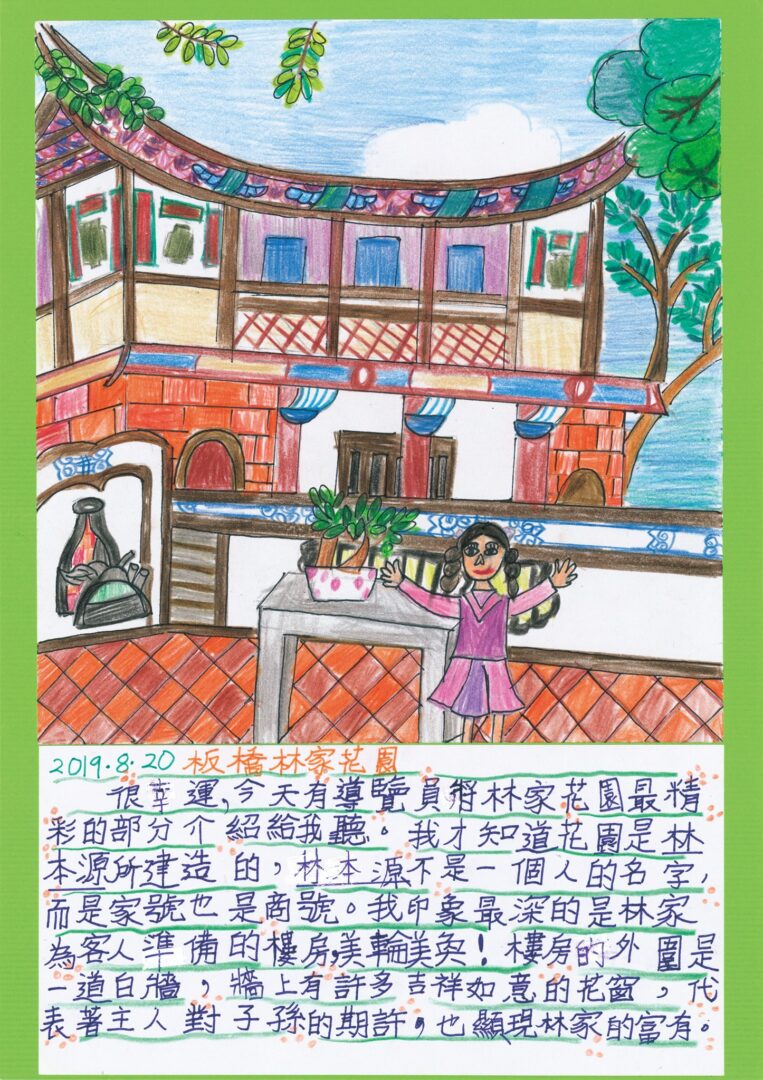 2019.8.20 板橋林家花園
很幸運,今天有導覽員將林家花園最精
彩的部分介紹給我聽。我才知道花園是林
本源所建造的,林本源不是一個人的名字,
而是家號也是商號。我印象最深的是林家
為客人準備的樓房,美輪美奐!樓房的外圍是
一道白牆,牆上有許多吉祥如意的花窗,代
表著主人對子孫的期許,也顯現林家的富有。